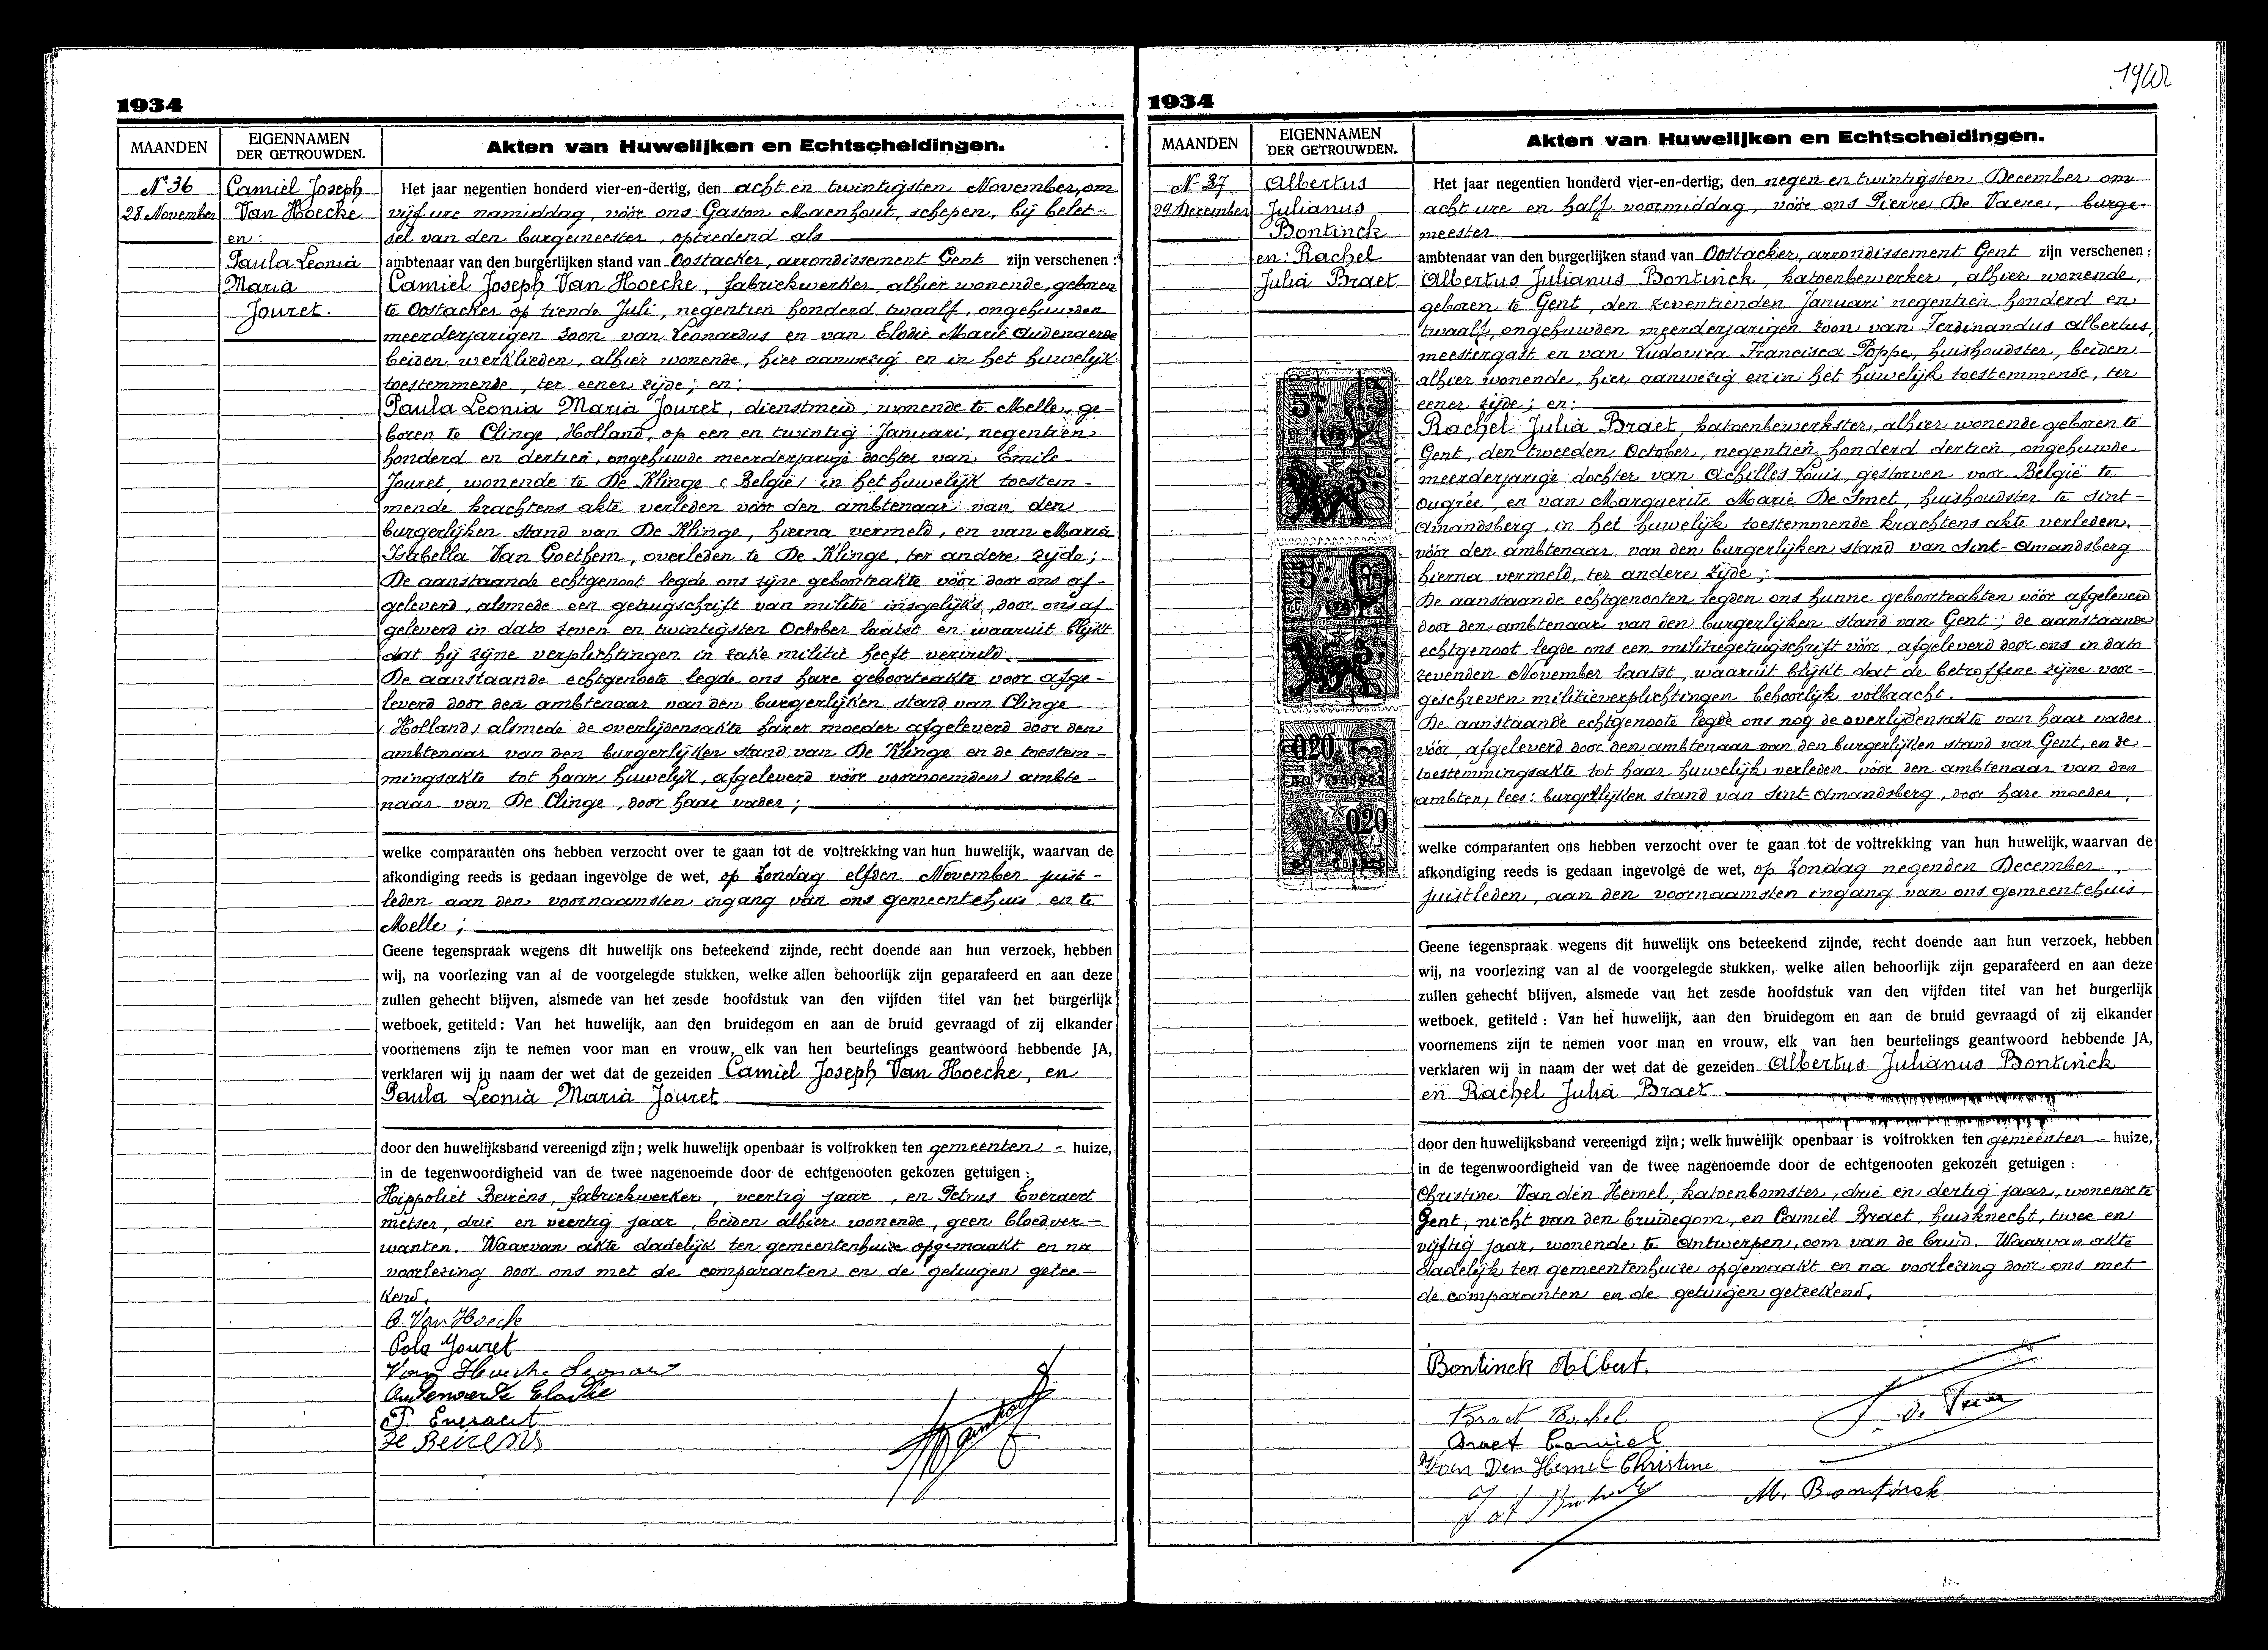 1934
MAANDEN
EIGENNAMEN
DER GETROUWDEN.
Akten van Huwelijken en Echtscheidingen.
N° 36
28 November
Camiel Joseph
Van Hoecke
en:
Paula Leonia
Maria
Jouret.
Het jaar negentien honderd vier-en-dertig, den acht en twintigsten November, om
vijf ure namiddag, vóór ons Gaston Maenhout, schepen, bij belet-
sel van den burgemeester, optredend als
ambtenaar van den burgerlijken stand van Oostacker, arrondissement Gent zijn verschenen:
Camiel Joseph Van Hoecke, fabriekwerker, alhier wonende, geboren
te Oostacker op tiende Juli, negentien honderd twaalf, ongehuwden
meerderjarigen zoon van Leonardus en van Elodie Marie Oudenaerde
beiden werklieden, alhier wonende, hier aanwezig en in het huwelijk
toestemmende, ter eener zijde; en:
Paula Leonia Maria Jouret, dienstmeid, wonende te Melle, ge-
boren te Clinge, Holland, op een en twintig Januari, negentien
honderd en dertien, ongehuwde meerderjarige dochter van Emile
Jouret, wonende te De Klinge (België) in het huwelijk toestem-
mende krachtens akte verleden vóór den ambtenaar van den
burgerlijken stand van De Klinge, hierna vermeld, en van Maria
Isabella Van Goethem, overleden te De Klinge, ter andere zijde;
De aanstaande echtgenoot legde ons zijne geboorteakte vóór door ons af-
geleverd, alsmede een getuigschrift van militie insgelijks, door ons af
geleverd in dato zeven en twintigsten October laatst en waaruit blijkt
dat hij zijne verplichtingen in zake militie heeft vervuld.
De aanstaande echtgenoote legde ons hare geboorteakte voor afge-
leverd door den ambtenaar van den burgerlijken stand van Clinge
(Holland) alsmede de overlijdensakte harer moeder afgeleverd door den
ambtenaar van den burgerlijken stand van De Klinge en de toestem-
mingsakte tot haar huwelijk, afgeleverd vóór voornoemden ambte-
naar van De Clinge, door haar vader;
welke comparanten ons hebben verzocht over te gaan tot de voltrekking van hun huwelijk, waarvan de
afkondiging reeds is gedaan ingevolge de wet, op Zondag elfden November juist-
leden aan den voornaamsten ingang van ons gemeentehuis en te
Melle;
Geene tegenspraak wegens dit huwelijk ons beteekend zijnde, recht doende aan hun verzoek, hebben
wij, na voorlezing van al de voorgelegde stukken, welke allen behoorlijk zijn geparafeerd en aan deze
zullen gehecht blijven, alsmede van het zesde hoofdstuk van den vijfden titel van het burgerlijk
wetboek, getiteld: Van het huwelijk, aan den bruidegom en aan de bruid gevraagd of zij elkander
voornemens zijn te nemen voor man en vrouw, elk van hen beurtelings geantwoord hebbende JA,
verklaren wij in naam der wet dat de gezeiden Camiel Joseph Van Hoecke, en
Paula Leonia Maria Jouret
door den huwelijksband vereenigd zijn; welk huwelijk openbaar is voltrokken ten gemeenten - huize,
in de tegenwoordigheid van de twee nagenoemde door de echtgenooten gekozen getuigen:
Hippoliet Beirens, fabriekwerker, veertig jaar, en Petrus Everaert
metser, drie en veertig jaar, beiden alhier wonende, geen bloedver-
wanten. Waarvan akte dadelijk ten gemeentenhuize opgemaakt en na
voorlezing door ons met de comparanten en de getuigen getee-
kend.
C. Van Hoecke
Pola Jouret
Van Hoecke Leonard
Oudenaerde Elodie
P. Everaert
H Beirens
1934
MAANDEN
EIGENNAMEN
DER GETROUWDEN.
Akten van Huwelijken en Echtscheidingen.
N° 37
29 December
Albertus
Julianus
Bontinck
en: Rachel
Julia Braet
Het jaar negentien honderd vier-en-dertig, den negen en twintigsten December om
acht ure en half voormiddag, vóór ons Pierre De Vaere, burge-
meester
ambtenaar van den burgerlijken stand van Oostacker, arrondissement Gent zijn verschenen:
Albertus Julianus Bontinck, katoenbewerker, alhier wonende,
geboren te Gent, den zeventienden Januari negentien honderd en
twaalf, ongehuwden meerderjarigen zoon van Ferdinandus Albertus,
meestergast en van Ludovica Francisca Poppe, huishoudster, beiden
alhier wonende, hier aanwezig en in het huwelijk toestemmende, ter
eener zijde; en:
Rachel Julia Braet, katoenbewerkster, alhier wonende geboren te
Gent, den tweeden October, negentien honderd dertien, ongehuwde
meerderjarige dochter van Achilles Louis, gestorven voor België te
Ougrée en van Marguerite Marie De Smet, huishoudster te Sint-
Amandsberg, in het huwelijk toestemmende krachtens akte verleden
vóór den ambtenaar van den burgerlijken stand van Sint-Amandsberg
hierna vermeld, ter andere zijde;
De aanstaande echtgenooten legden ons hunne geboorteakten vóór afgeleverd
door den ambtenaar van den burgerlijken stand van Gent; de aanstaande
echtgenoot legde ons een militiegetuigschrift vóór, afgeleverd door ons in dato
zevenden November laatst, waaruit blijkt dat de betroffene zijne voor-
geschreven militieverplichtingen behoorlijk volbracht.
De aanstaande echtgenoote legde ons nog de overlijdensakte van haar vader
vóór, afgeleverd door den ambtenaar van den burgerlijken stand van Gent, en de
toestemmingsakte tot haar huwelijk verleden vóór den ambtenaar van den
ambten, lees: burgerlijken stand van Sint-Amandsberg, door hare moeder.
welke comparanten ons hebben verzocht over te gaan tot de voltrekking van hun huwelijk, waarvan de
afkondiging reeds is gedaan ingevolge de wet, op Zondag negenden December
juistleden, aan den voornaamsten ingang van ons gemeentehuis,
Geene tegenspraak wegens dit huwelijk ons beteekend zijnde, recht doende aan hun verzoek, hebben
wij, na voorlezing van al de voorgelegde stukken, welke allen behoorlijk zijn geparafeerd en aan deze
zullen gehecht blijven, alsmede van het zesde hoofdstuk van den vijfden titel van het burgerlijk
wetboek, getiteld: Van het huwelijk, aan den bruidegom en aan de bruid gevraagd of zij elkander
voornemens zijn te nemen voor man en vrouw, elk van hen beurtelings geantwoord hebbende JA,
verklaren wij in naam der wet dat de gezeiden Albertus Julianus Bontinck
en Rachel Julia Braet
door den huwelijksband vereenigd zijn; welk huwelijk openbaar is voltrokken ten gemeenten - huize,
in de tegenwoordigheid van de twee nagenoemde door de echtgenooten gekozen getuigen:
Christine Van den Hemel, katoenbomster, drie en dertig jaar, wonende te
Gent, nicht van den bruidegom, en Camiel Braet, huisknecht, twee en
vijftig jaar, wonende te Antwerpen, oom van de bruid. Waarvan akte
dadelijk ten gemeentenhuize opgemaakt en na voorlezing door ons met
de comparanten en de getuigen geteekend.
Bontinck Albert.
Braet Rachel
Braet Camiel
Van Den Hemel Christine
M. Bontinck